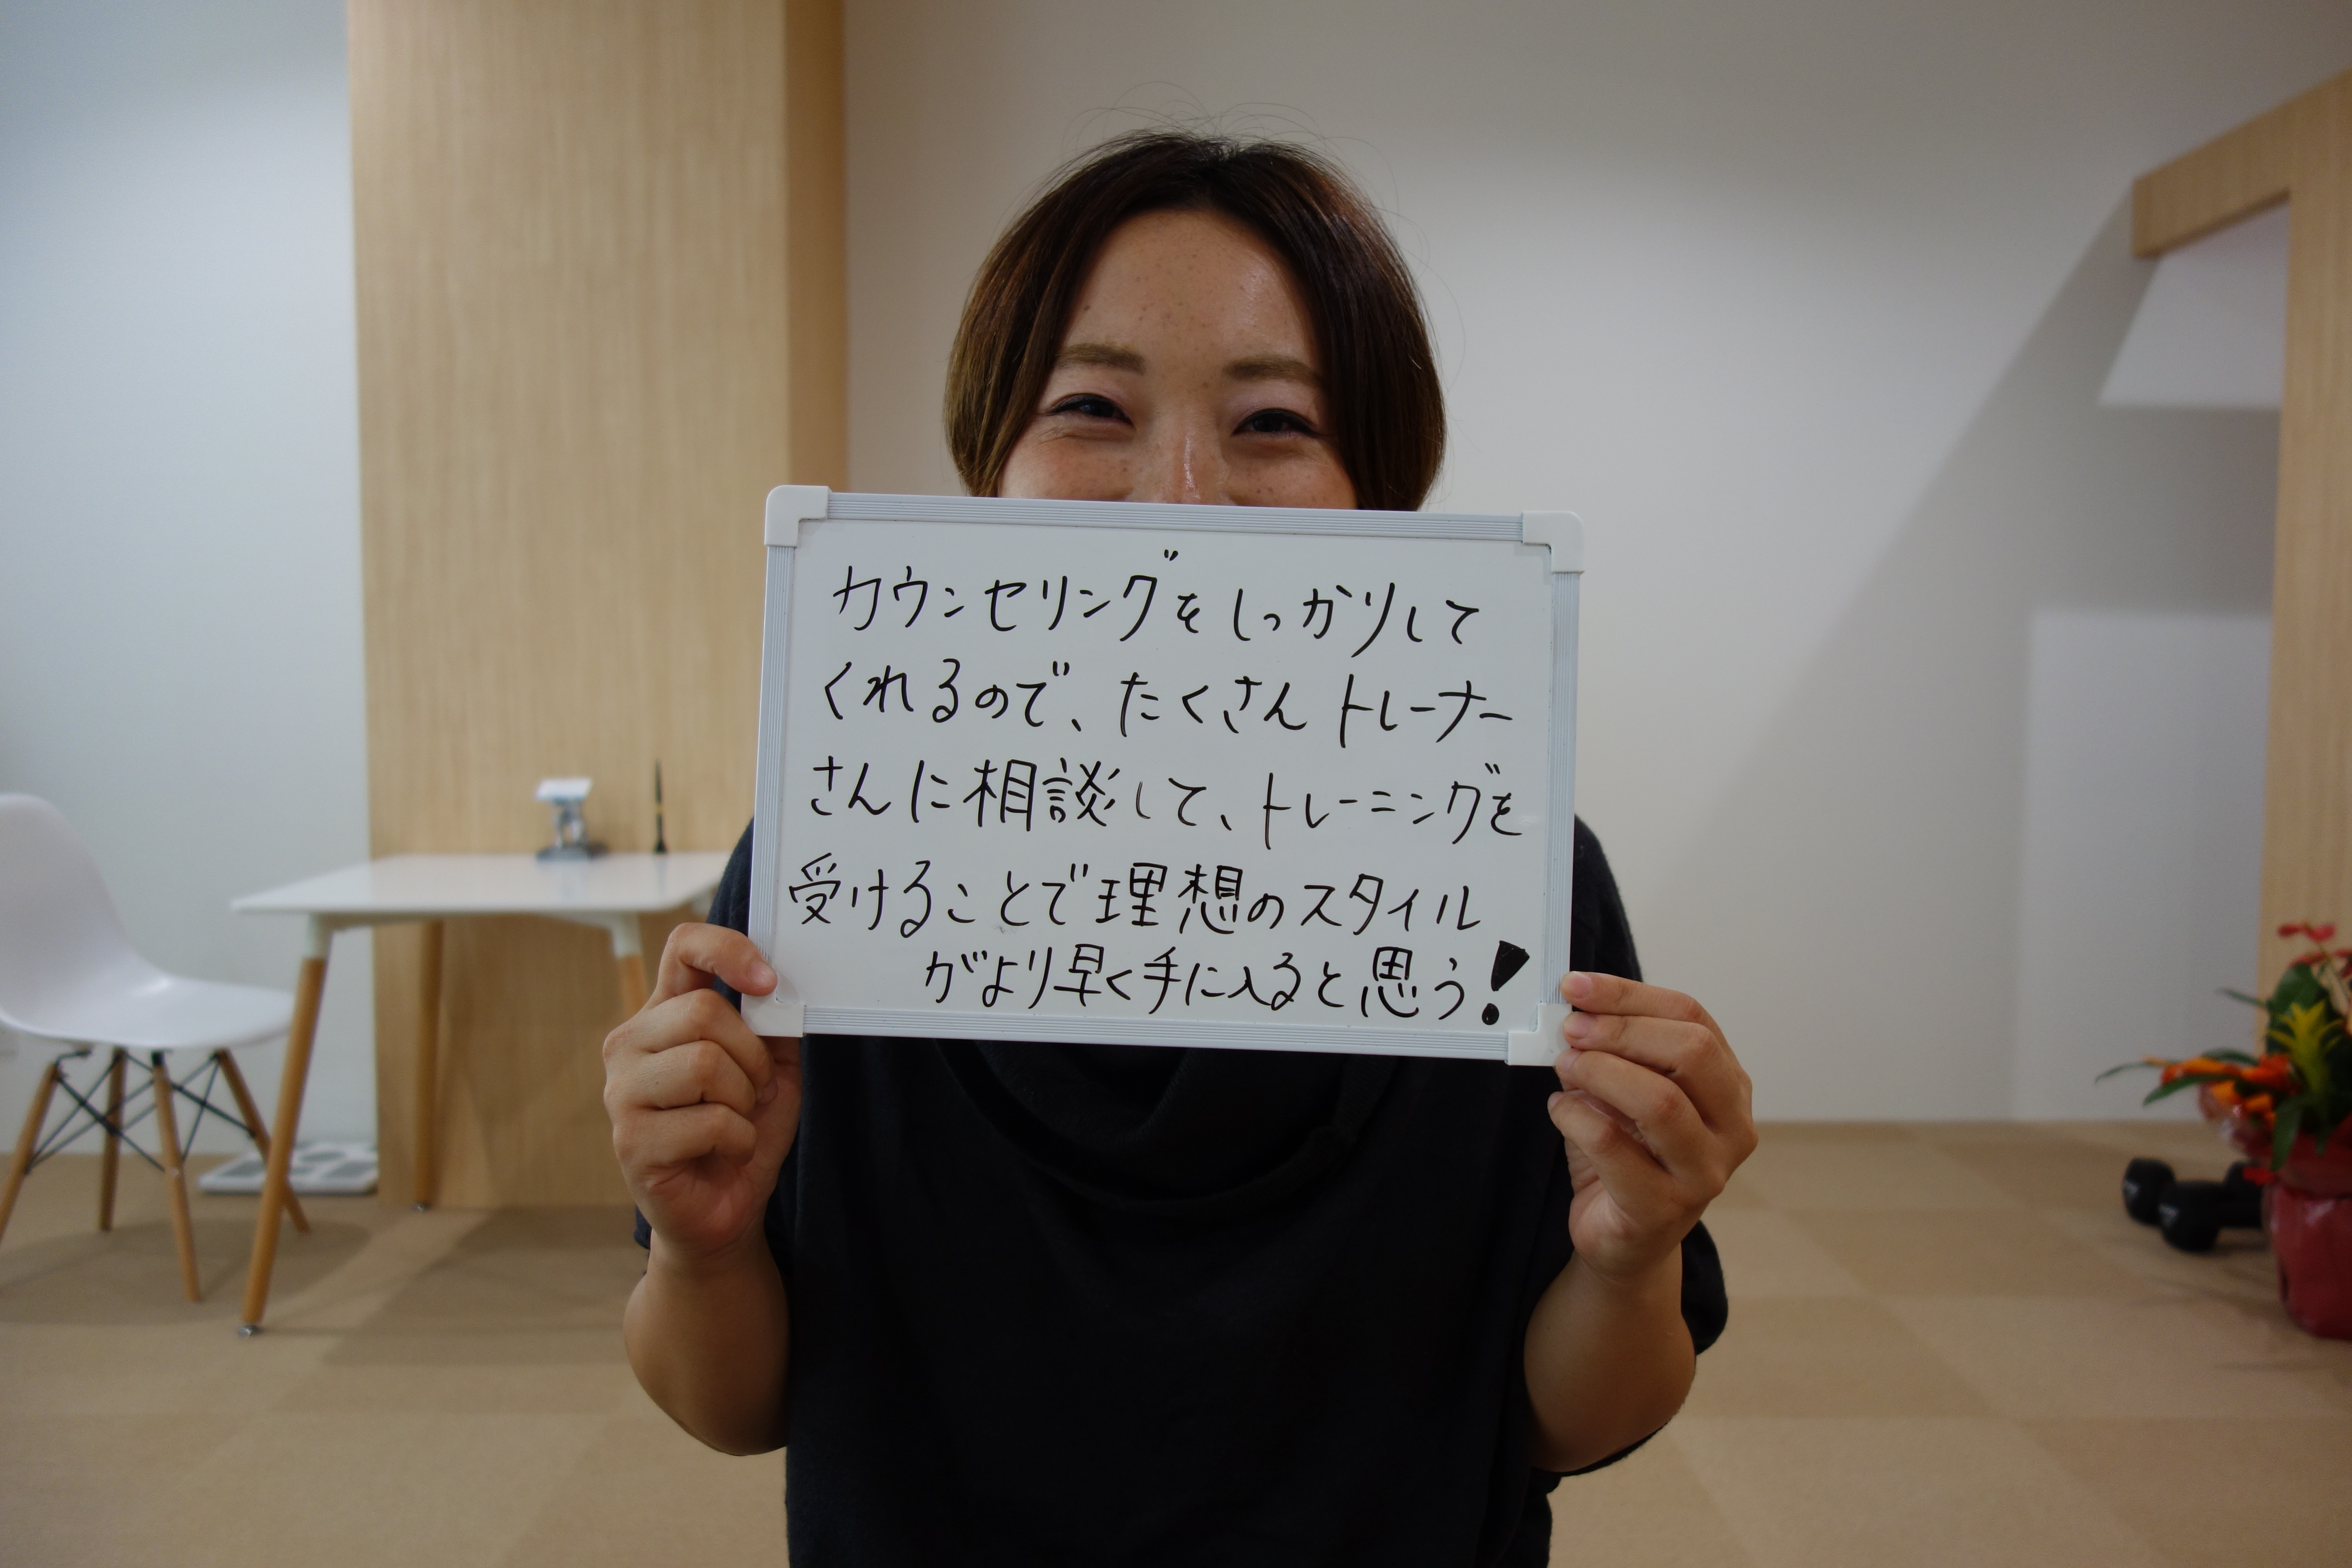 カウンセリングをしっかりして
くれるので、たくさんトレーナー
さんに相談して、トレーニングを
受けることで理想のスタイル
がより早く手に入ると思う!